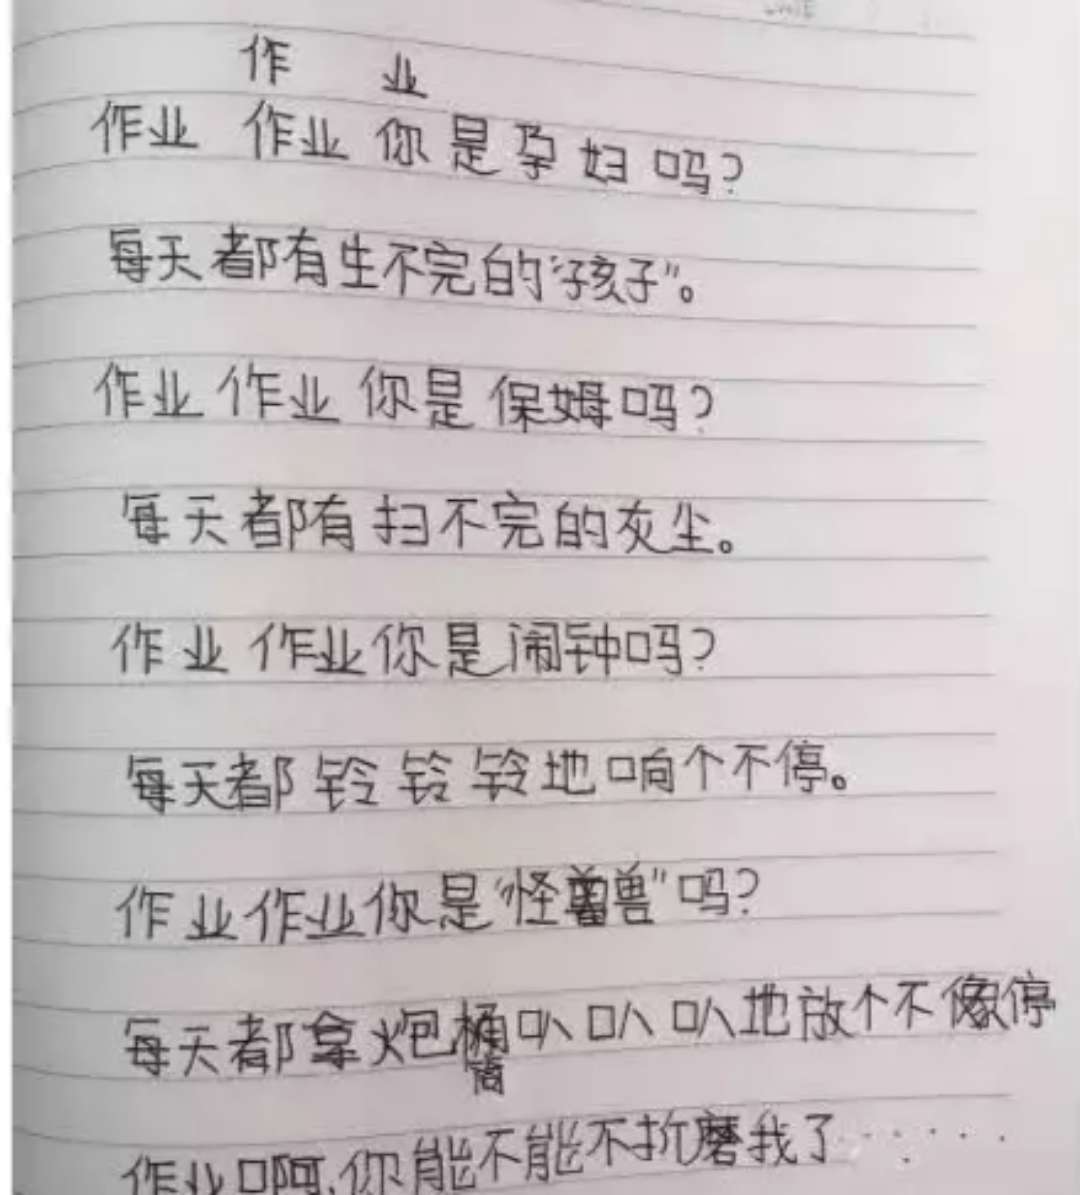 作 业
作业 作业 你是孕妇吗?
每天都有生不完的“孩子”。
作业 作业 你是保姆吗?
每天都有扫不完的灰尘。
作业 作业你是闹钟吗?
每天都铃铃铃地响个不停。
作业作业你是“怪兽”吗?
每天都拿火炮筒叭叭叭地放个不停
作业啊,你能不能不折磨我了······